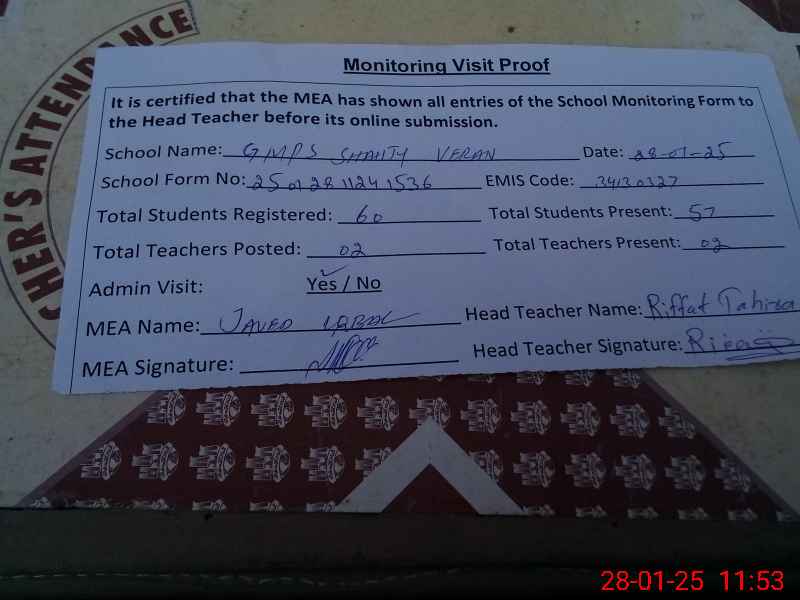 CHER'S ATTENDANCE
Monitoring Visit Proof
It is certified that the MEA has shown all entries of the School Monitoring Form to
the Head Teacher before its online submission.
School Name: GMPS SHAHTY VERAN Date: 28-01-25
School Form No: 25012811241536 EMIS Code: 34130327
Total Students Registered: 60 Total Students Present: 57
Total Teachers Posted: 02 Total Teachers Present: 02
Admin Visit: Yes / No
MEA Name: JAVED IQBAL Head Teacher Name: Riffat Tahira
MEA Signature: Head Teacher Signature:
28-01-25 11:53